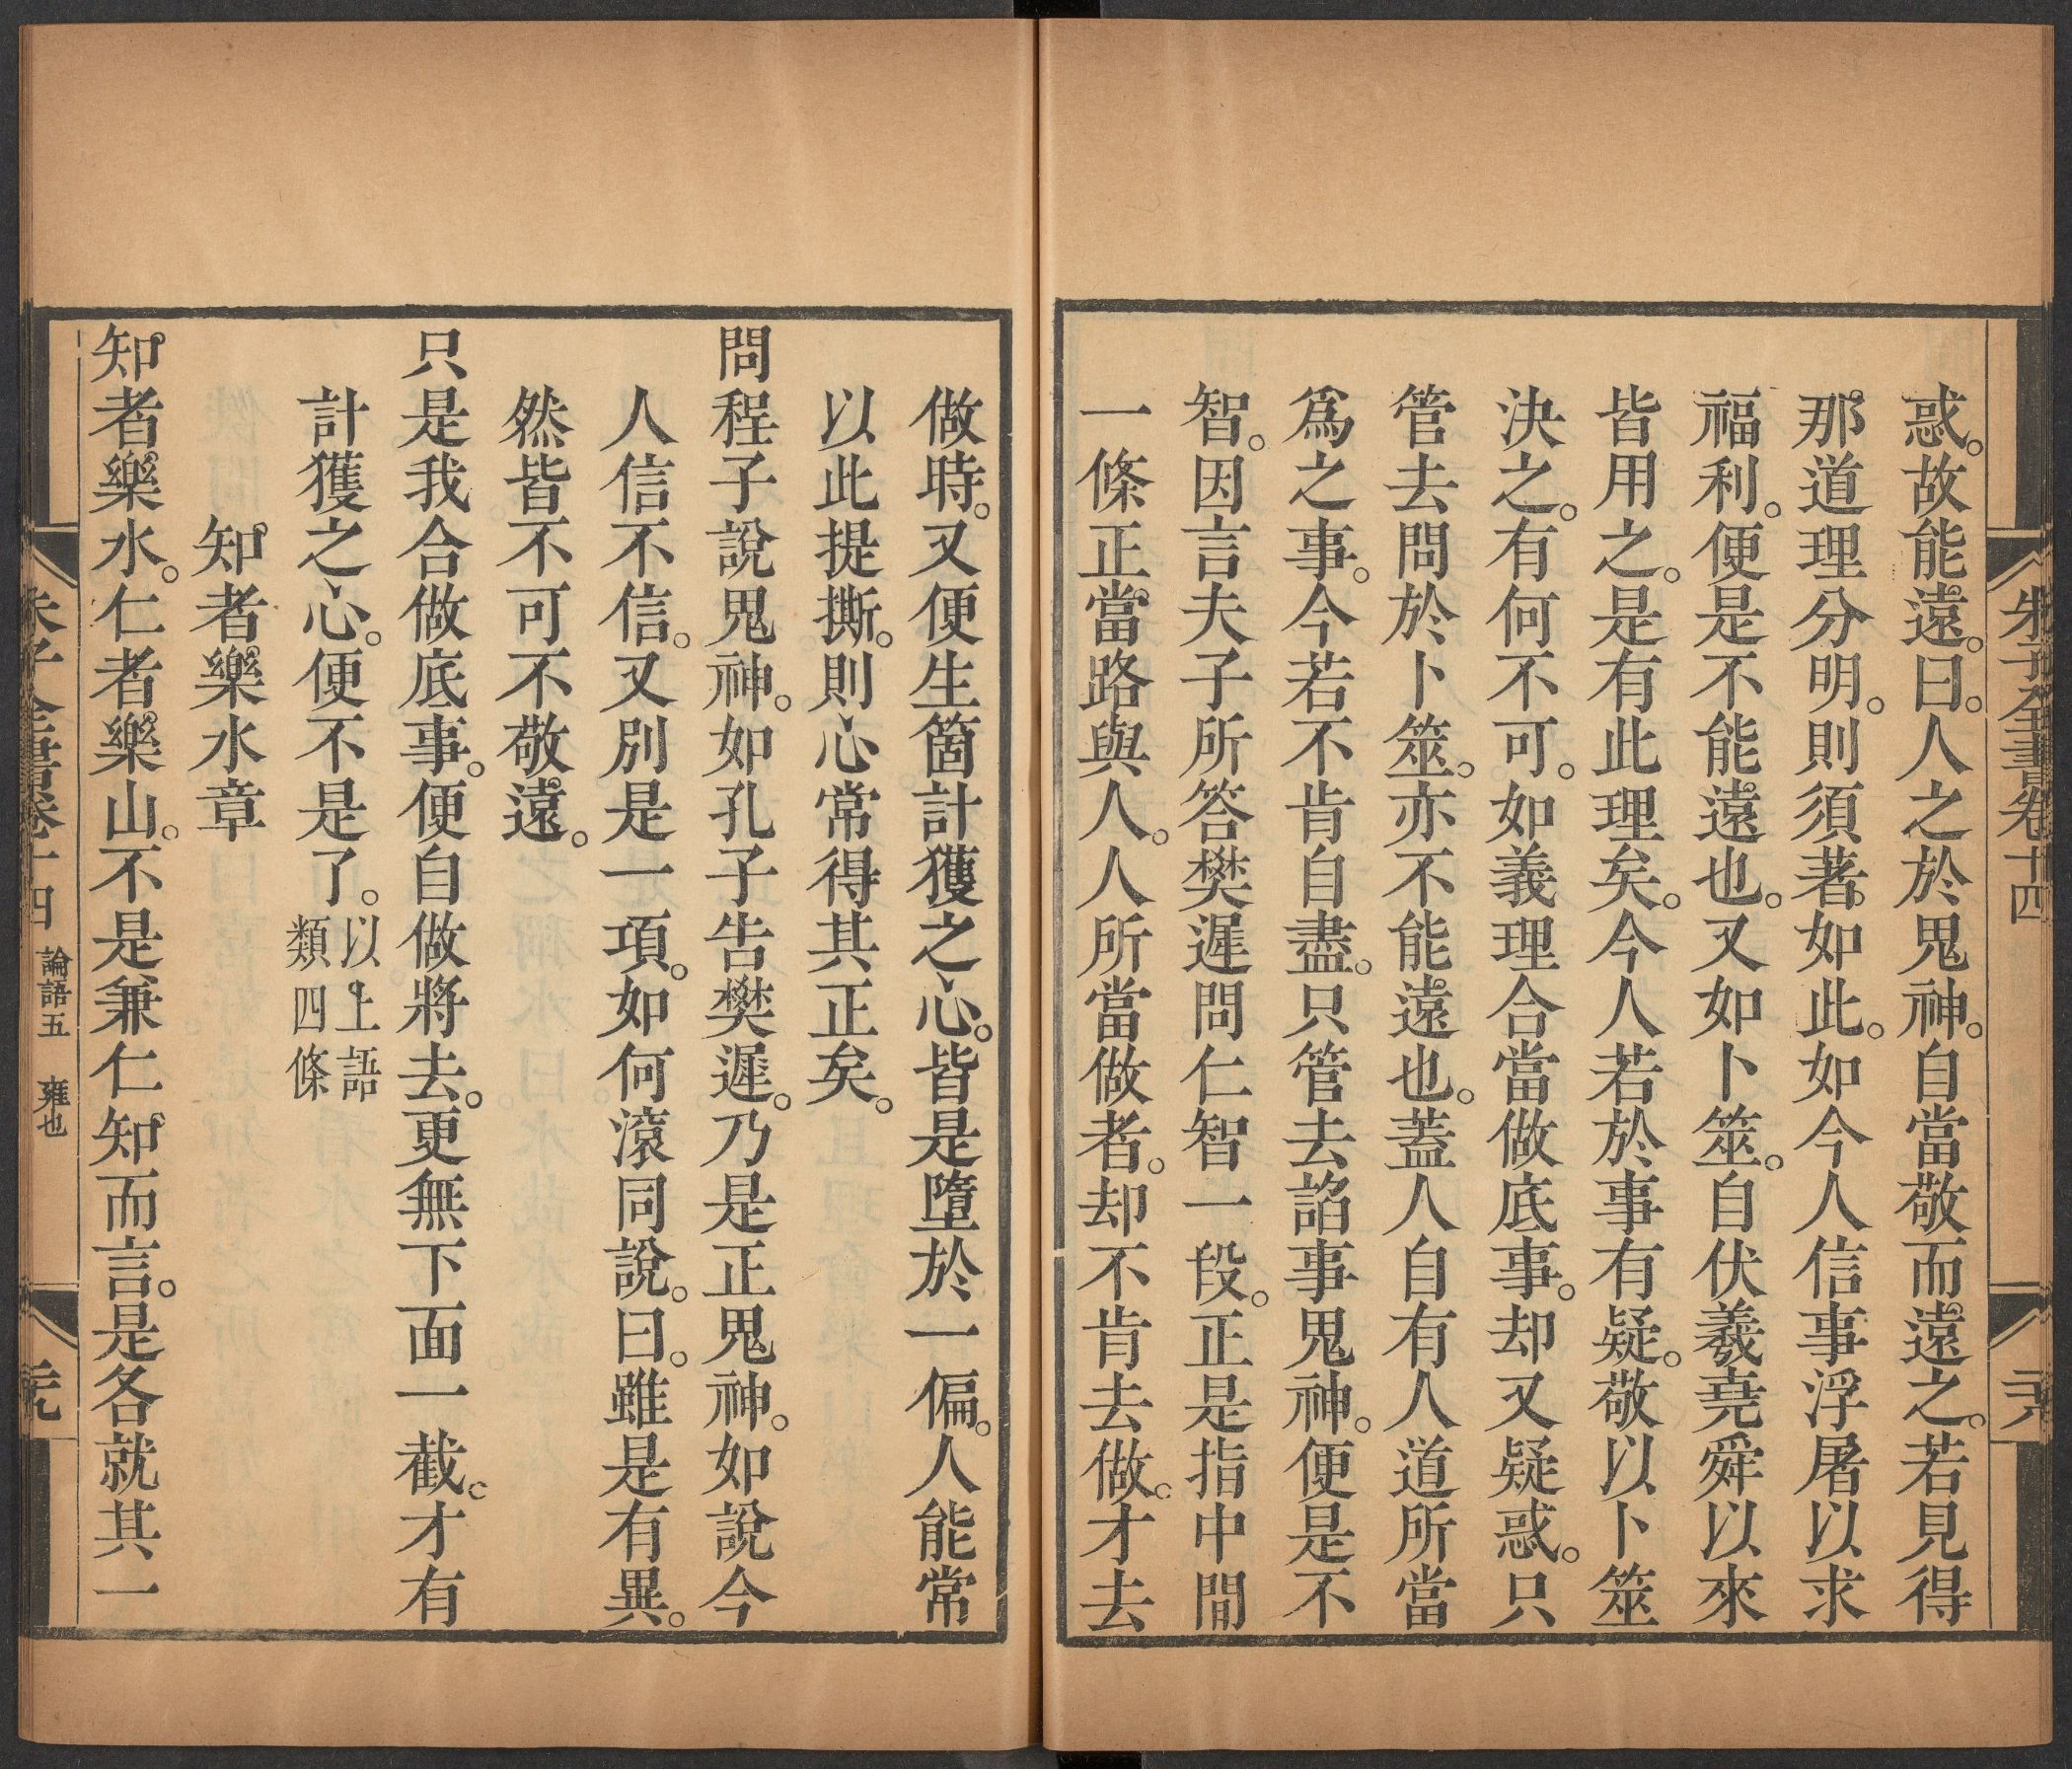 朱子全書卷十四
二十八
惑。故能遠。曰。人之於鬼神。自當敬而遠之。若見得
那道理分明。則須著如此。如今人信事浮屠以求
福利。便是不能遠也。又如卜筮。自伏羲堯舜以來
皆用之。是有此理矣。今人若於事有疑。敬以卜筮
決之。有何不可。如義理合當做底事。却又疑惑。只
管去問於卜筮。亦不能遠也。蓋人自有人道所當
爲之事。今若不肯自盡。只管去諂事鬼神。便是不
智。因言夫子所答樊遲問仁智一段。正是指中間
一條正當路與人。人所當做者。却不肯去做。才去
做時。又便生箇計獲之心。皆是墮於一偏。人能常
以此提撕。則心常得其正矣。
問程子說鬼神。如孔子告樊遲。乃是正鬼神。如說今
人信不信。又別是一項。如何滾同說。曰。雖是有異。
然皆不可不敬遠。
只是我合做底事。便自做將去。更無下面一截。才有
計獲之心。便不是了。以上語類四條
知者樂水章
知者樂水。仁者樂山。不是兼仁知而言。是各就其一
朱子全書卷十四 論語五 雍也
二十九